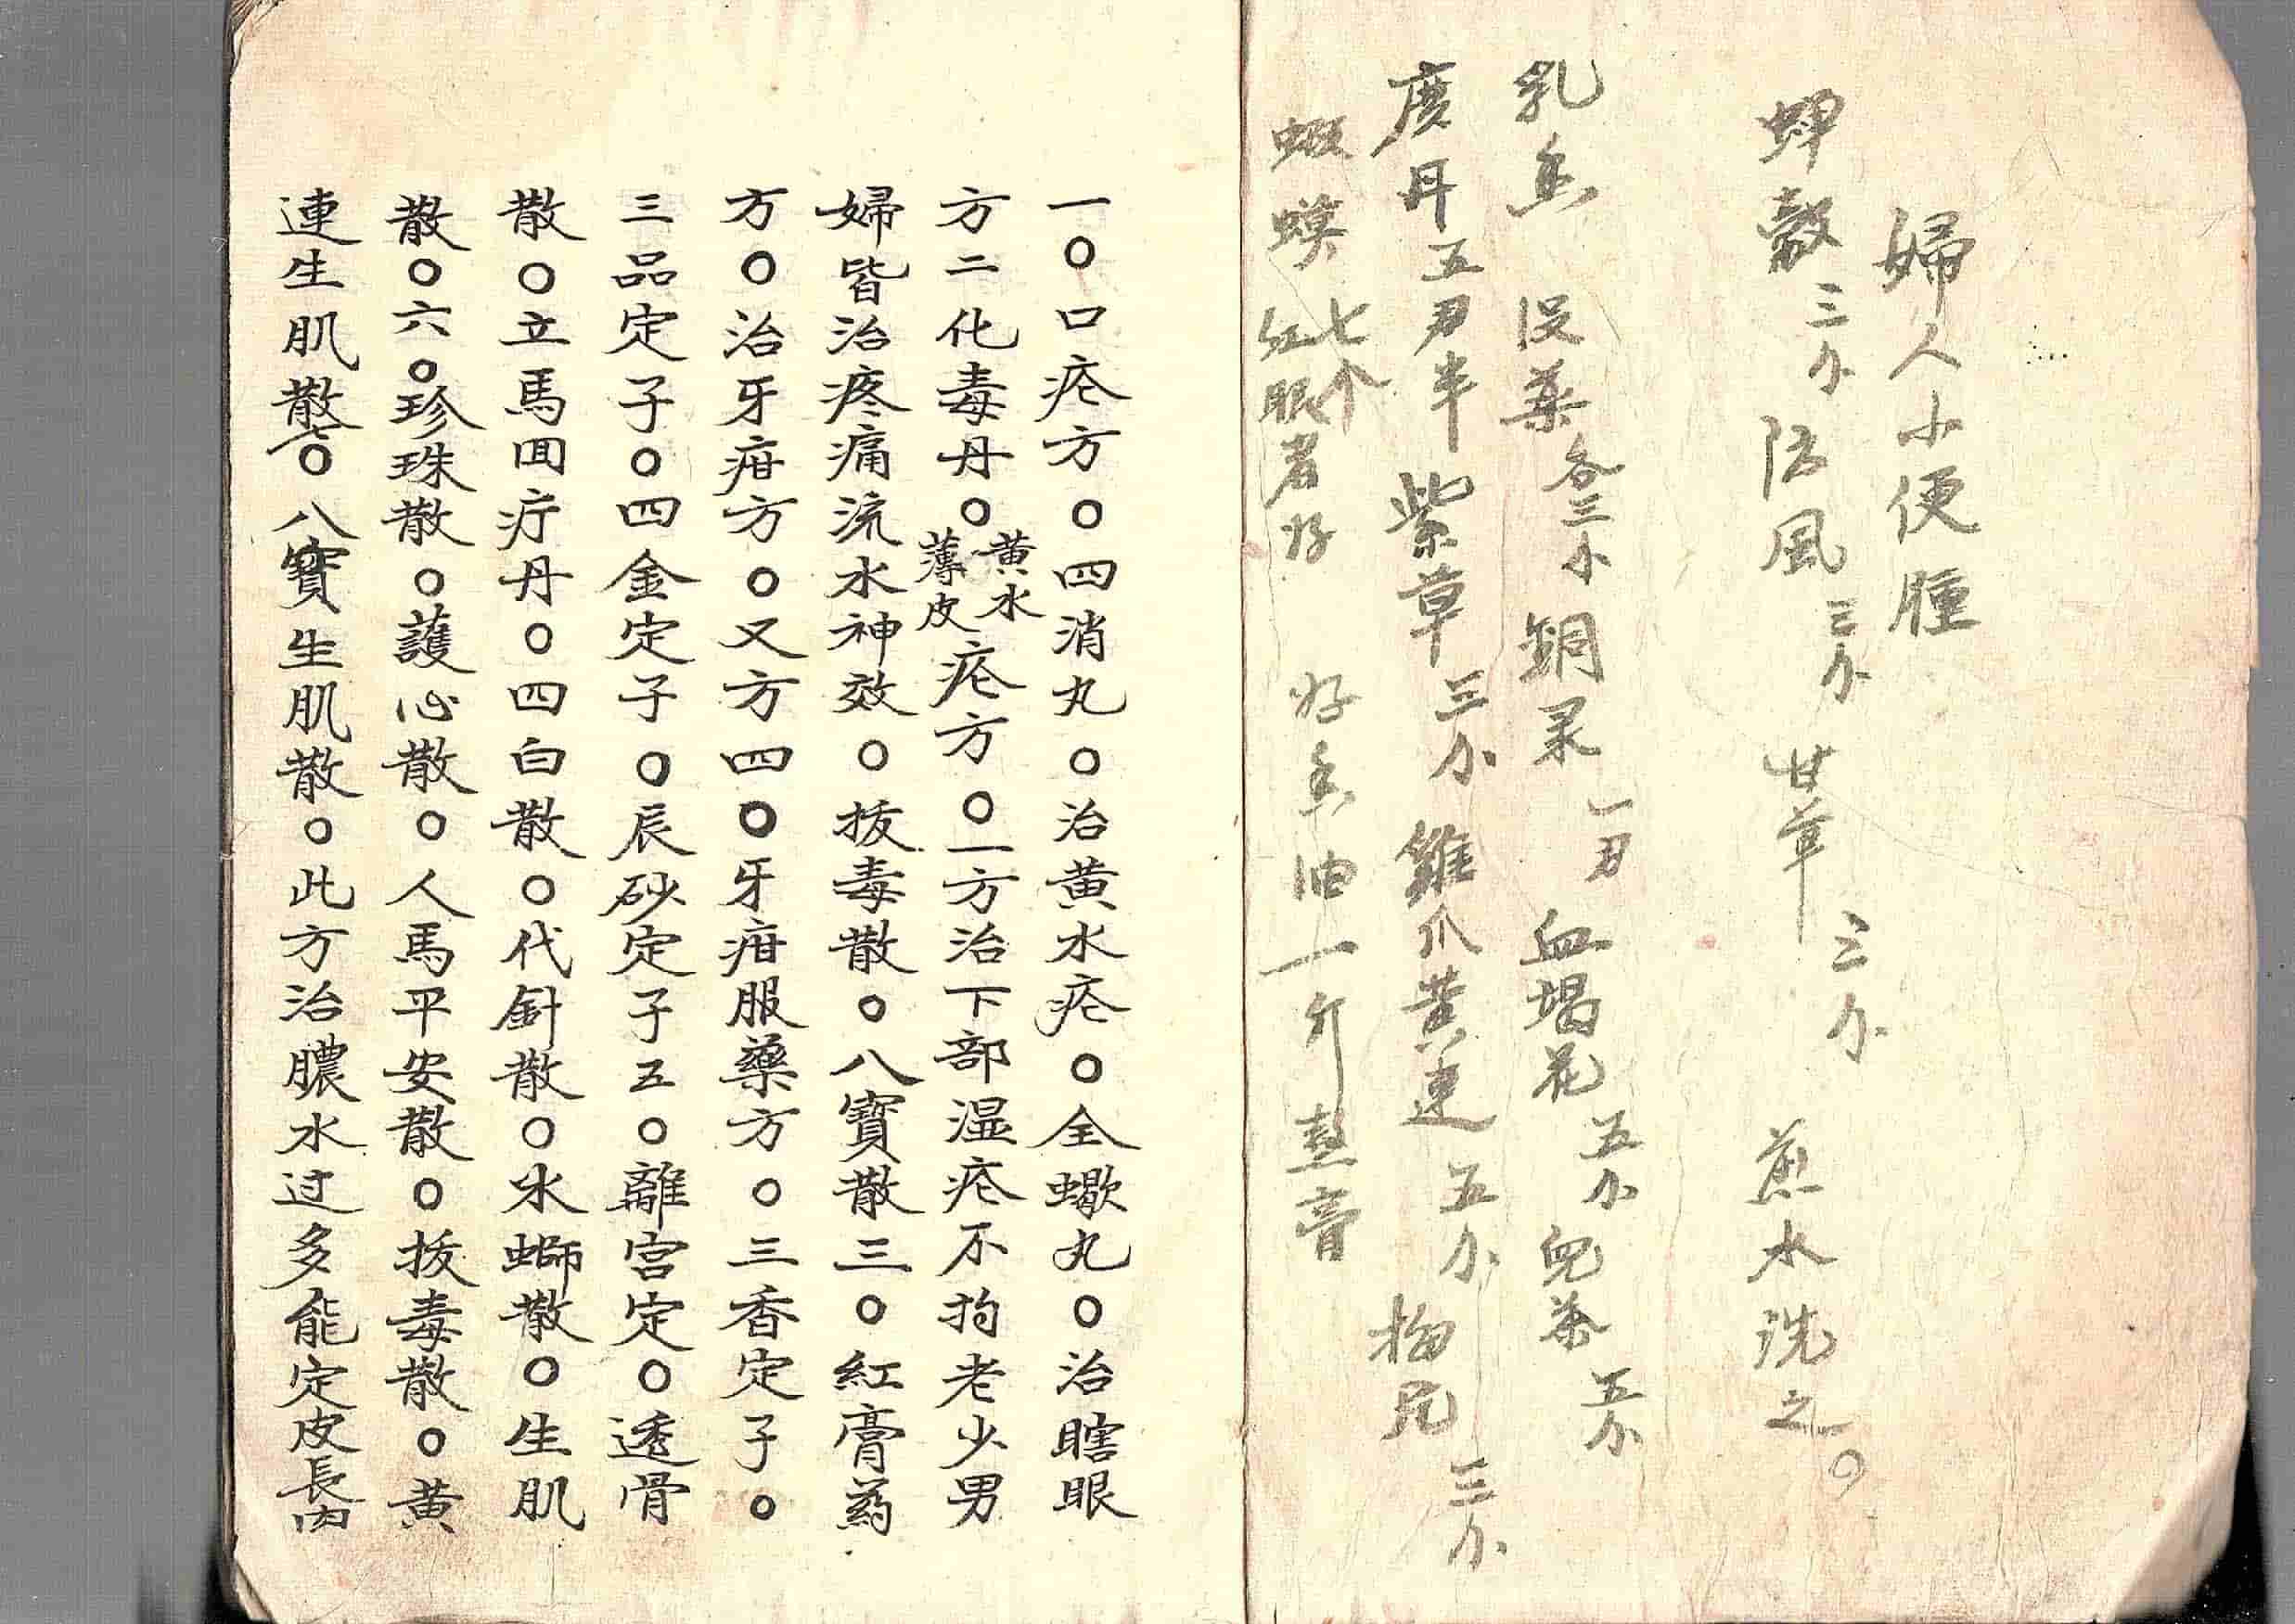 婦人小便腫
蝉殼三分 防風三分 甘草三分 煎水洗之〇
乳香 没藥各三分 銅录一刄 血竭花五分 兒茶五分
广丹五刄半 紫草三分 雞爪黄連五分
蝦蟆七个 紅眼者好 好香油一斤 熬膏
一〇口疮方〇四消丸〇治黄水疮〇全蠍丸〇治瞎眼
方二化毒丹〇黄水薄皮疮方〇一方治下部湿疮不拘老少男
婦皆治疼痛流水神效〇拔毒散〇八寶散三〇紅膏药
方〇治牙疳方〇又方四〇牙疳服藥方〇三香定子〇
三品定子〇四金定子〇辰砂定子五〇離宫定〇透骨
散〇立馬回疔丹〇四白散〇代針散〇水螄散〇生肌
散〇六〇珍珠散〇護心散〇人馬平安散〇拔毒散〇黄
連生肌散七〇八寶生肌散〇此方治膿水过多能定皮長肉